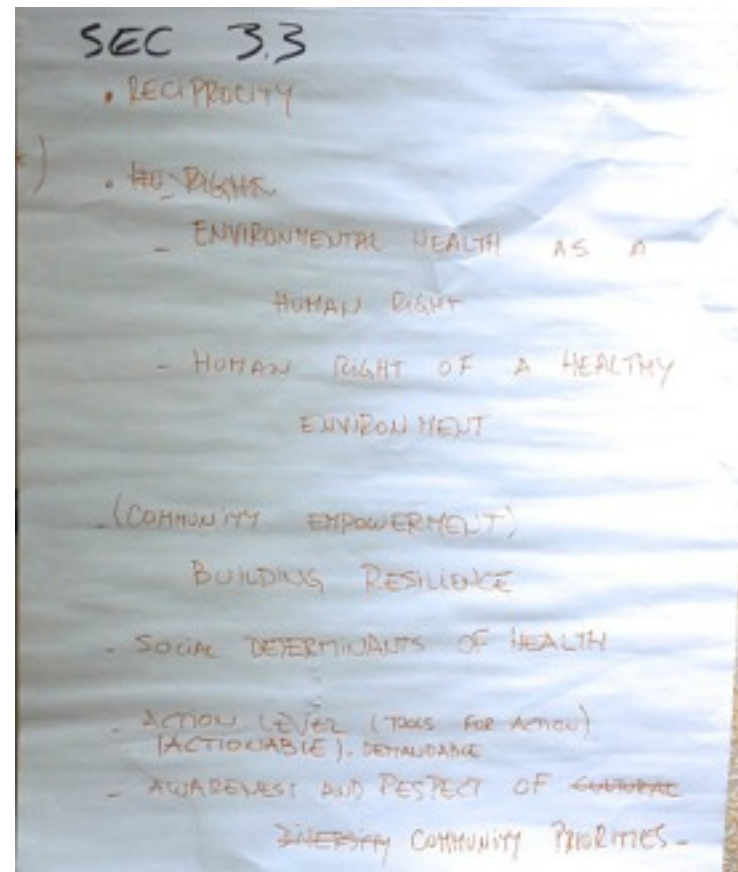 SEC 3.3
• RECIPROCITY
)
• RIGHTS
- ENVIRONMENTAL HEALTH AS A
HUMAN RIGHT
- HUMAN RIGHT OF A HEALTHY
ENVIRONMENT
- (COMMUNITY EMPOWERMENT)
BUILDING RESILIENCE
- SOCIAL DETERMINANTS OF HEALTH
- ACTION LEVEL (TOOLS FOR ACTION)
(ACTIONABLE). DEMANDABLE
- AWARENESS AND RESPECT OF CULTURAL
DIVERSITY COMMUNITY PRIORITIES -